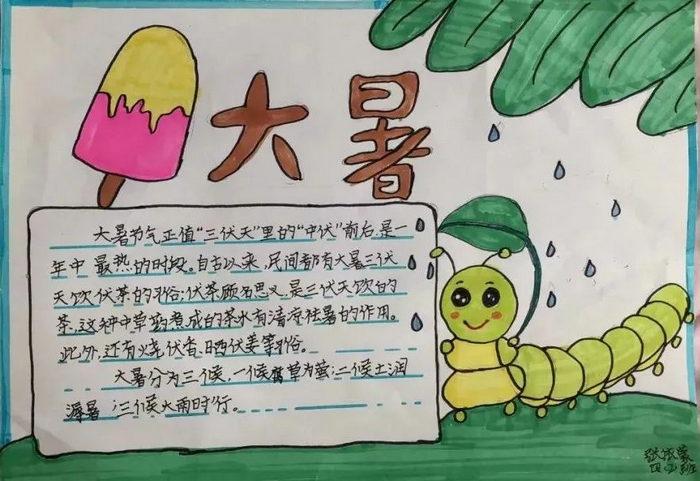 大暑
大暑节气正值“三伏天”里的“中伏”前后,是一
年中最热的时段。自古以来,民间都有大暑三伏
天饮伏茶的习俗;伏茶顾名思义,是三伏天饮的
茶,这种中草药煮成的茶水有清凉祛暑的作用。
此外,还有烧伏香、晒伏姜等俗。
大暑分为三候,一候腐草为萤;二候土润
溽暑;三候大雨时行。
四班